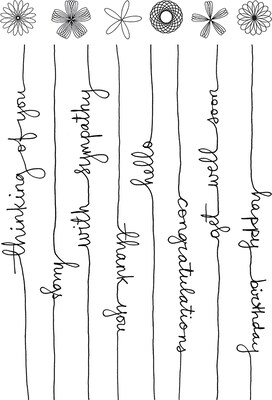 thinking of you
hugs
with sympathy
thank you
hello
congratulations
get well soon
happy birthday